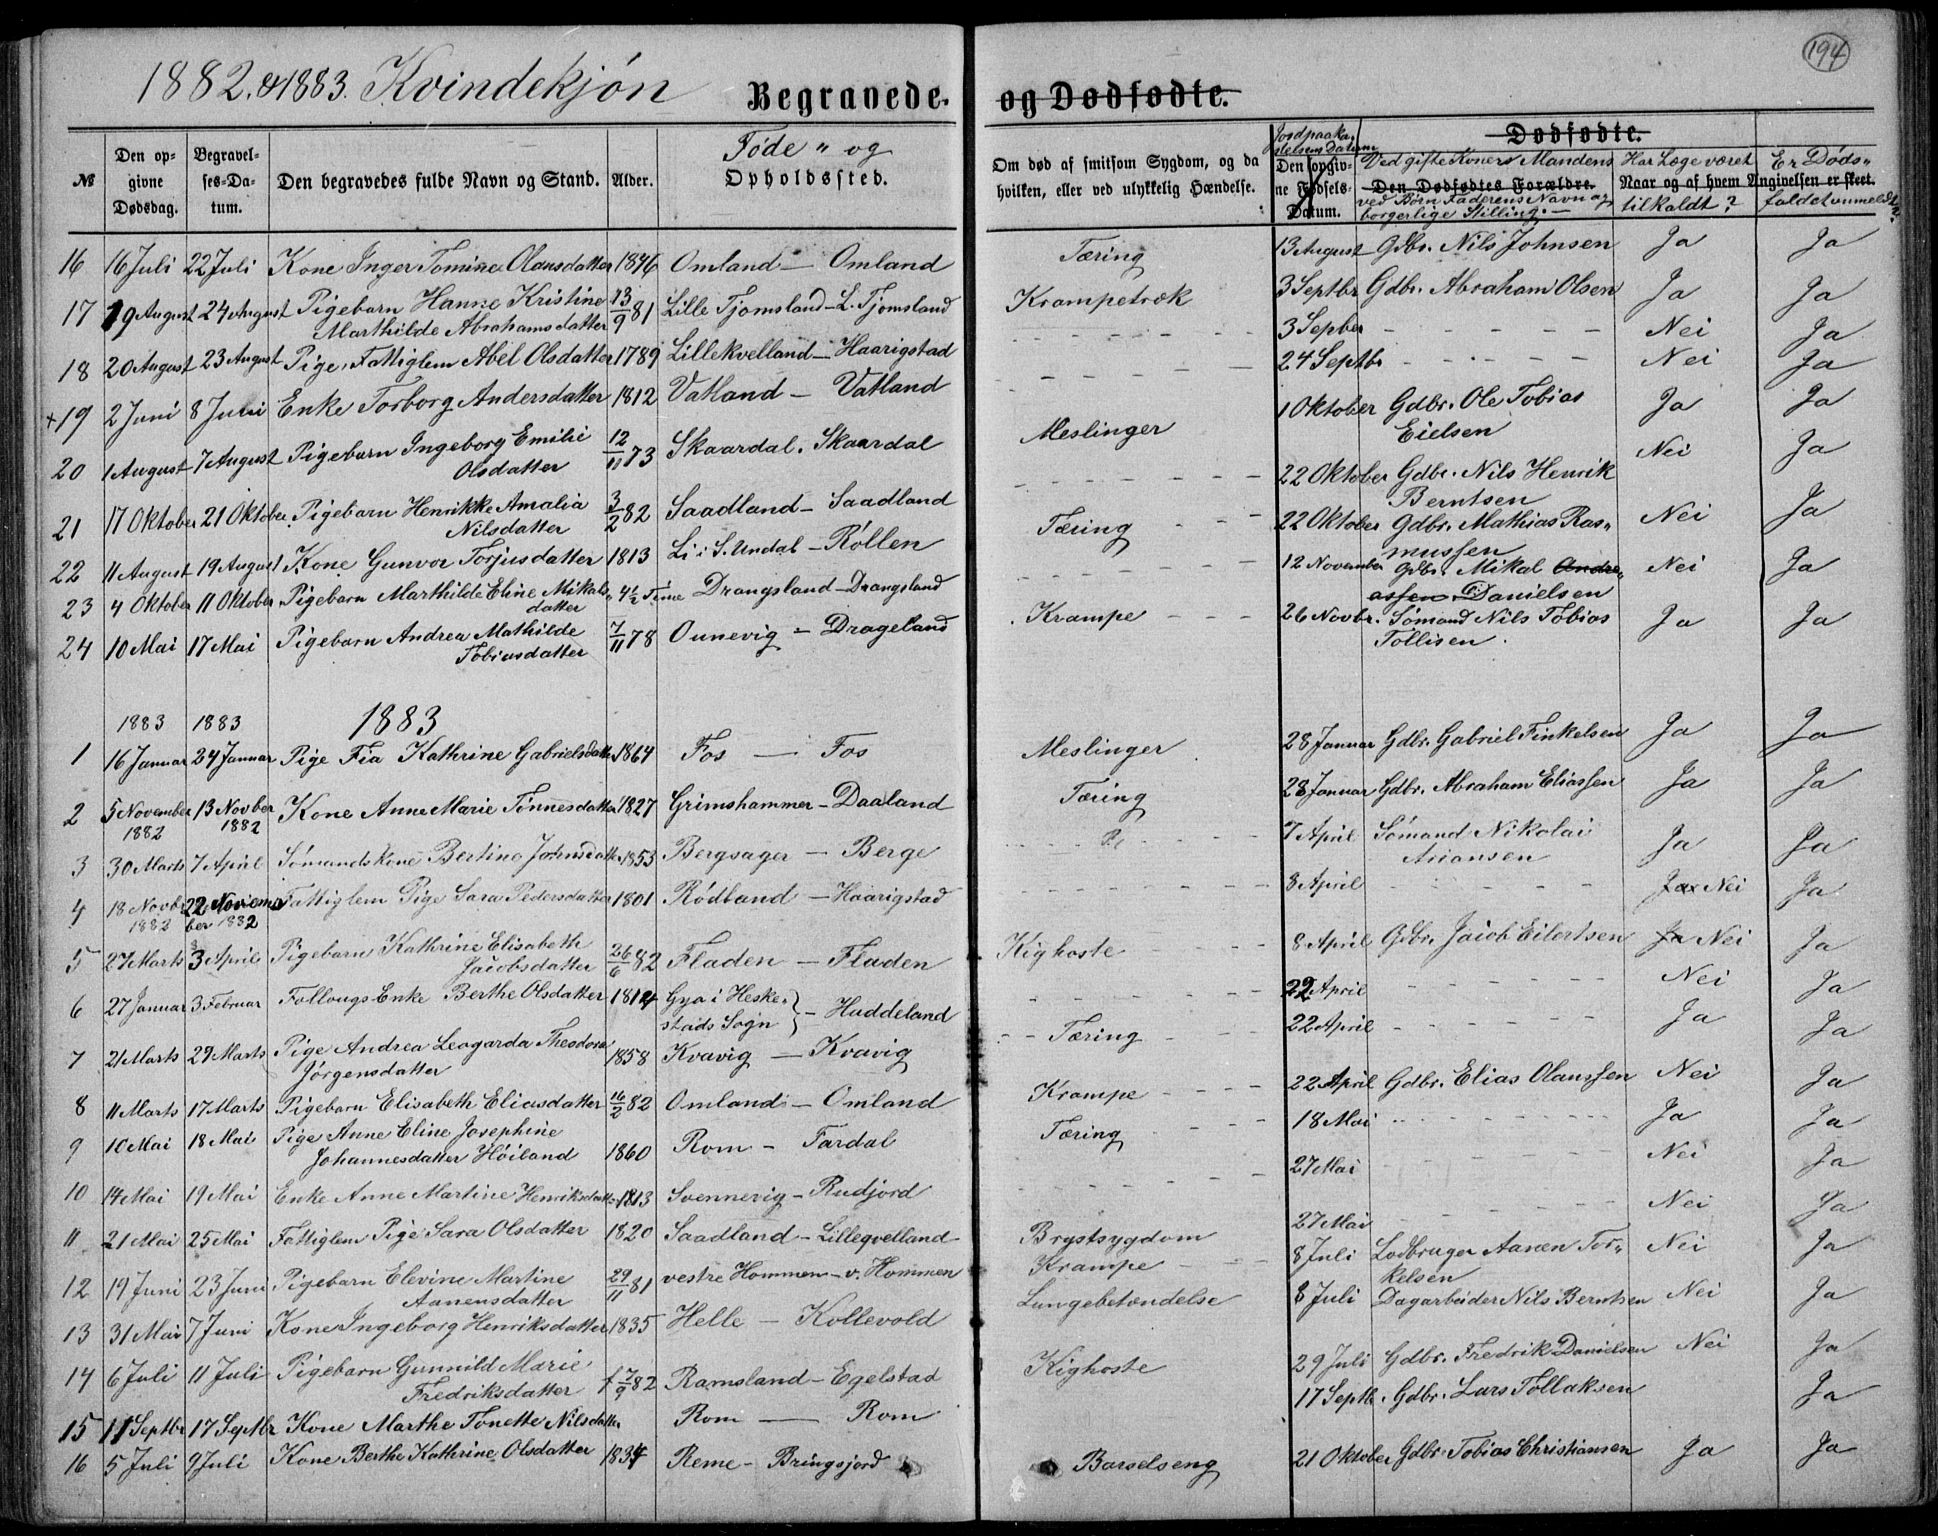 194
1882. & 1883. Kvindekjön
Begravede. og Dødfødte.
№ Den opgivne Dødsdag. Begravelses-Datum. Den begravedes fulde Navn og Stand. Alder. Föde " og Opholdssted. Om død af smitsom Sygdom, og da hvilken, eller ved ulykkelig Hændelse. Jordpaakastelsens Datum Den opgivne Fødsels-Datum. Dødfødte. Ved gifte Koner Mandens Den Dødfødtes Forældre. ved Børn Faderens Navn og borgerlige Stilling. Har Læge været Naar og af hvem tilkaldt? Er Døds- Angivelsen er skeet. faldet anmeldt?
16 16 Juli 22 Juli Kone Inger Tomine Olausdatter 1846 Omland — Omland Tæring 13 August Gdbr. Nils Johnsen Ja Ja
17 19 August 24 August Pigebarn Hanne Kristine 13/9 81 Lille Tjomsland – L. Tjomsland Krampetræk 3 Septbr Gdbr. Abraham Olsen Ja Ja
Marthilde Abrahamsdatter
18 20 August 23 August Pige, Fattiglem Abel Olsdatter 1789 Lillekvelland – Haarigstad 3 Sepber Nei Ja
+ 19 2 Juni 8 Juni Enke Torborg Andersdatter 1812 Vatland – Vatland 24 Septbr Nei Ja
20 1 August 7 August Pigebarn Ingeborg Emilie 12/11 73 Skaardal. Skaardal Meslinger 1 Oktober Gdbr. Ole Tobias Ja Ja
Olsdatter Eielsen
21 17 Oktober 21 Oktober Pigebarn Henrikke Amalia 3/2 82 Saadland – Saadland 22 Oktober Gdbr. Nils Henrik Nei Ja
Nilsdatter Berntsen
22 11 August 19 August Kone Gunvor Torjusdatter 1813 Li i S. Undal – Röllen Tæring 22 Oktober Gdbr. Mathias Ras- Nei Ja
mussen
23 4 Oktober 11 Oktober Pigebarn Marthilde Eline Mikals- 4½ Time Drangsland – Drangsland 12 November Gdbr. Mikal Andre- Nei Ja
datter assen Danielsen
24 10 Mai 17 Mai Pigebarn Andrea Mathilde 7/11 78 Ounevig – Drageland Krampe 26 Novbr. Sömand Nils Tobias Ja Ja
Tobiasdatter Tollisen.
1883 1883 1883
1 16 Januar 24 Januar Pige Fia Kathrine Gabrielsdatter 1864 Fos — Fos Meslinger 28 Januar Gdbr. Gabriel Finkelsen Ja Ja
2 5 November 13 Novber Kone Anne Marie Tönnesdatter 1827 Grimshammer – Daaland Tæring 28 Januar Gdbr. Abraham Eliassen Ja Ja
1882 1882
3 30 Marts 7 April Sömands Kone Bertine Johnsdatter 1853 Bergsager – Berge 7 April Sömand Nikolai Ja Ja
Asiansen
4 18 Novbr 22 Novem- Fattiglem Pige Sara Pedersdatter 1801 Rödland – Haarigstad 8 April Ja Nei Ja
1882 ber 1882
5 27 Marts 3 April Pigebarn Kathrine Elisabeth 26/6 82 Fladen – Fladen Kighoste 8 April Gdbr. Jacob Eilertsen Ja Nei Ja
Jacobsdatter
6 27 Januar 3 Februar Follougs Enke Berthe Olsdatter 1814 Gya i Heske- – Huddeland 22 April Nei Ja
stads Sogn
7 21 Marts 29 Marts Pige Andrea Leagarda Theodora 1858 Kvavig – Kvavig Tæring 22 April Ja Ja
Jörgensdatter
8 11 Marts 17 Marts Pigebarn Elisabeth Eliasdatter 16/2 82 Omland – Omland Krampe 22 April Gdbr. Elias Olaussen Nei Ja
9 10 Mai 18 Mai Pige Anne Eline Josephine 1860 Rom – Fardal Tæring 18 Mai Ja Ja
Johannesdatter Höiland
10 14 Mai 19 Mai Enke Anne Martine Henriksdatter 1813 Svennevig – Rudjord 27 Mai Nei Ja
11 21 Mai 25 Mai Fattiglem Pige Sara Olsdatter 1820 Saadland – Lilleqvelland Brystsygdom 27 Mai Nei Ja
12 19 Juni 23 Juni Pigebarn Elevine Martine 29/11 81 vestre Hommen – v. Hommen Krampe 8 Juli Lodbruger Aanen Tor- Nei Ja
Aanensdatter kelsen
13 31 Mai 7 Juni Kone Ingeborg Henriksdatter 1835 Helle – Kollevold Lungebetændelse 8 Juli Dagarbeider Nils Berntsen Nei Ja
14 6 Juli 11 Juli Pigebarn Gunnild Marie 17/9 82 Ramsland – Egelstad Kighoste 29 Juli Gdbr. Fredrik Danielsen Nei Ja
Fredriksdatter
15 11 Septbr 17 Septbr Kone Marthe Tonette Nilsdatter Rom — Rom 17 Septbr. Gdbr. Lars Tollaksen Ja
16 5 Juli 9 Juli Kone Berthe Kathrine Olsdatter 1834 Reme – Bringsjord Barselseng 21 Oktober Gdbr. Tobias Christiansen Ja Ja